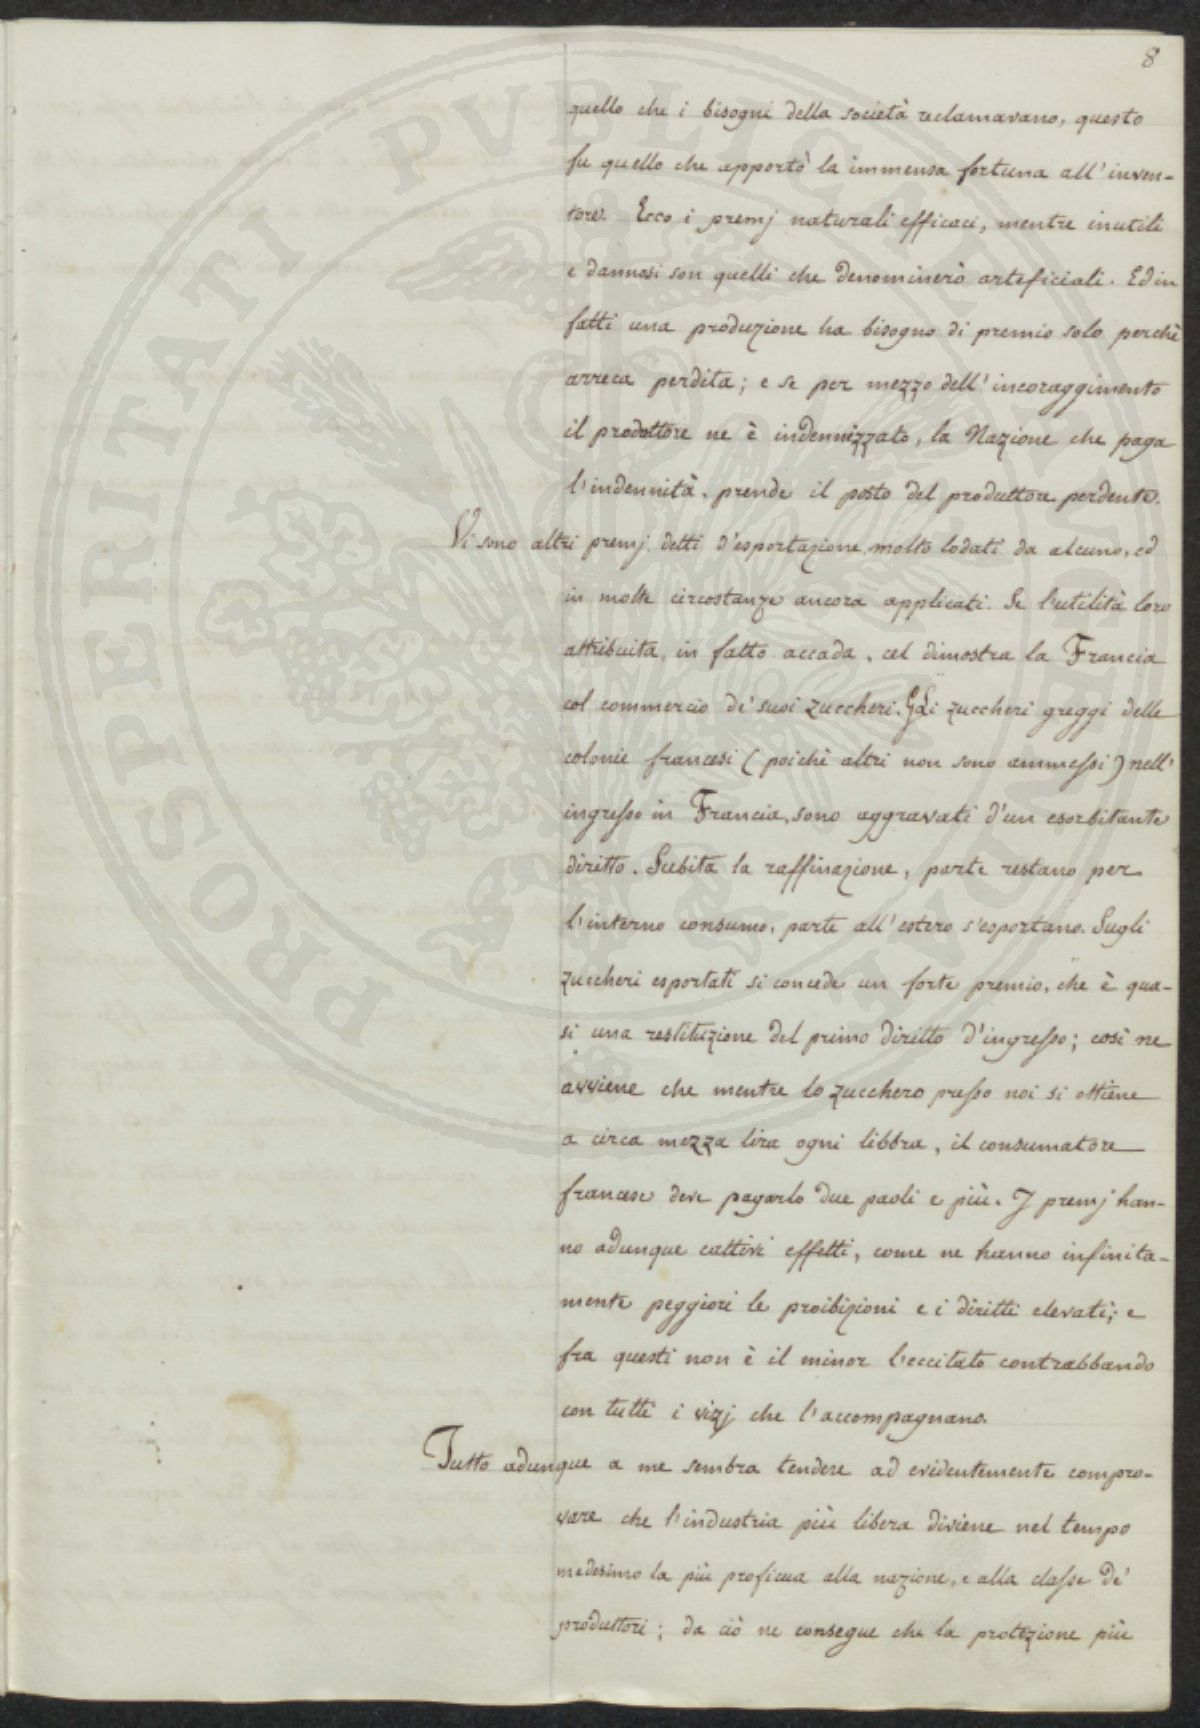 8
quello che i bisogni della società reclamavano, questo
fu quello che apportò la immensa fortuna all'inven-
tore. Ecco i premj naturali efficaci, mentre inutili
e dannosi son quelli che denominerò arteficiali. Ed in
fatti una produzione ha bisogno di premio solo perchè
arreca perdita; e se per mezzo dell'incoraggimento
il produttore ne è indennizzato, la Nazione che paga
l'indennità, prende il posto del produttore perdente.
Vi sono altri premj detti d'esportazione molto lodati da alcuno, ed
in molte circostanze ancora applicati. Se l'utilità loro
attribuita, in fatto accada, cel dimostra la Francia
col commercio de' suoi zuccheri. Gli zuccheri greggi delle
colonie francesi (poichè altri non sono ammessi) nell'
ingresso in Francia, sono aggravati d'un esorbitante
diritto. Subita la raffinazione, parte restano per
l'interno consumo, parte all'estero s'esportano. Sugli
zuccheri esportati si concede un forte premio, che è qua-
si una restituzione del primo diritto d'ingresso; così ne
avviene che mentre lo zucchero presso noi si ottiene
a circa mezza lira ogni libbra, il consumatore
francese deve pagarlo due paoli e più. I premj han-
no adunque cattivi effetti, come ne hanno infinita-
mente peggiori le proibizioni e i diritti elevati; e
fra questi non è il minor l'eccitato contrabbando
con tutti i vizj che l'accompagnano.
Tutto adunque a me sembra tendere ad evidentemente compro-
vare che l'industria più libera diviene nel tempo
medesimo la più proficua alla nazione, e alla classe de'
produttori; da ciò ne consegue che la protezione più
PROSPERITATI PUBLICAE